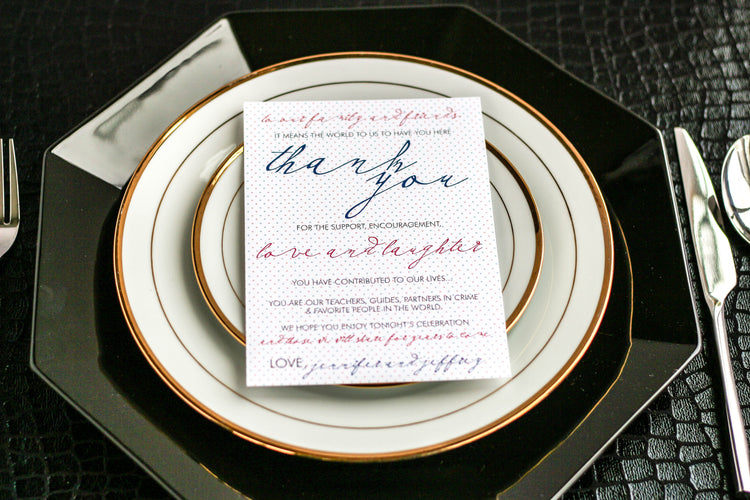 to our family and friends
IT MEANS THE WORLD TO US TO HAVE YOU HERE
thank
you
FOR THE SUPPORT, ENCOURAGEMENT,
love and laughter
YOU HAVE CONTRIBUTED TO OUR LIVES...
YOU ARE OUR TEACHERS, GUIDES, PARTNERS IN CRIME
& FAVORITE PEOPLE IN THE WORLD.
WE HOPE YOU ENJOY TONIGHT'S CELEBRATION
and those we will share for years to come
LOVE, jennifer and jeffrey